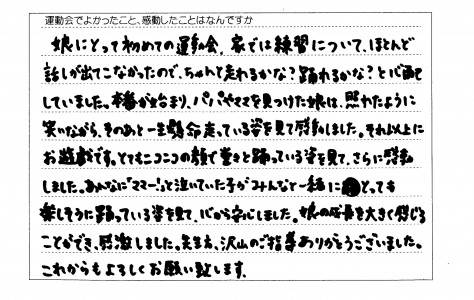 運動会でよかったこと、感動したことはなんですか
娘にとって初めての運動会。家では練習について、ほとんど
話しが出てこなかったので、ちゃんと走れるかな?踊れるかな?と心配
していました。本番が始まり、パパやママを見つけた娘は、照れたように
笑いながら、そのあと一生懸命走っている姿を見て感動しました。それ以上に
お遊戯です。とてもニコニコの顔で堂々と踊っている姿を見て、さらに感動
しました。あんなに「ママー!」と泣いていた子がみんなと一緒にとっても
楽しそうに踊っている姿を見て、心から安心しました。娘の成長を大きく感じる
ことができ、感激しました。先生方、沢山のご指導ありがとうございました。
これからもよろしくお願い致します。